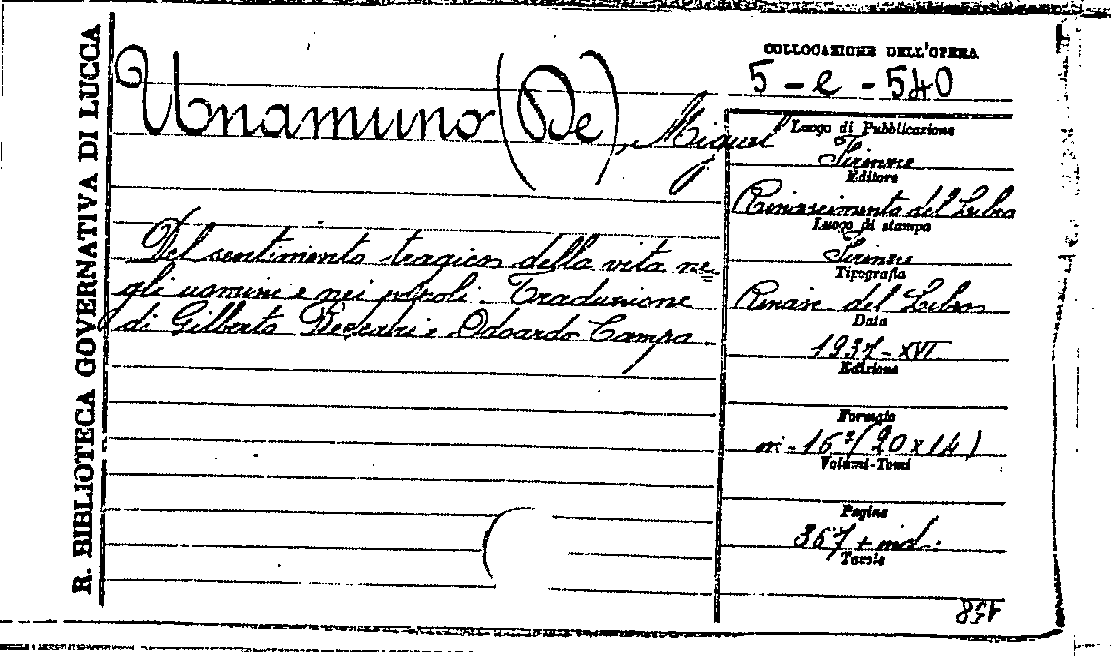 R. BIBLIOTECA GOVERNATIVA DI LUCCA
COLLOCAZIONE DELL'OPERA
5-e-540
Unamuno (De), Miguel
Del sentimento tragico della vita ne-
gli uomini e nei popoli. Traduzione
di Gilberto Beccari e Odoardo Campa
Luogo di Pubblicazione
Firenze
Editore
Rinascimento del Libro
Luogo di stampa
Firenze
Tipografia
Rinasc. del Libro
Data
1937-XVI
Edizione
Formato
in-16° (20x14)
Volumi-Tomi
Pagine
367 + ind.
Tavole